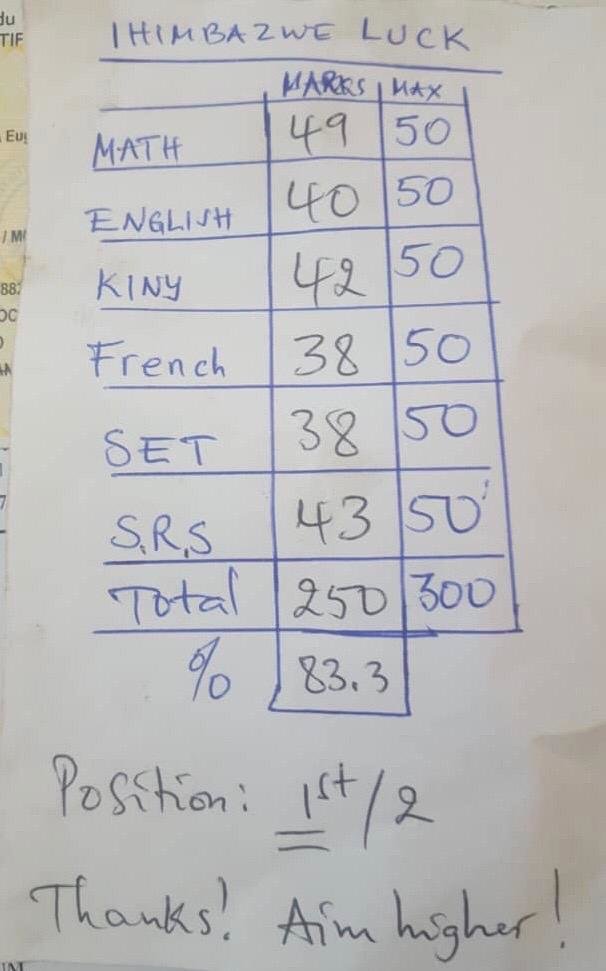 IHIMBAZWE LUCK
MARKS MAX
MATH 49 50
ENGLISH 40 50
KINY 42 50
French 38 50
SET 38 50
S.R.S 43 50
Total 250 300
% 83.3
Position: 1st/2
Thanks! Aim higher!